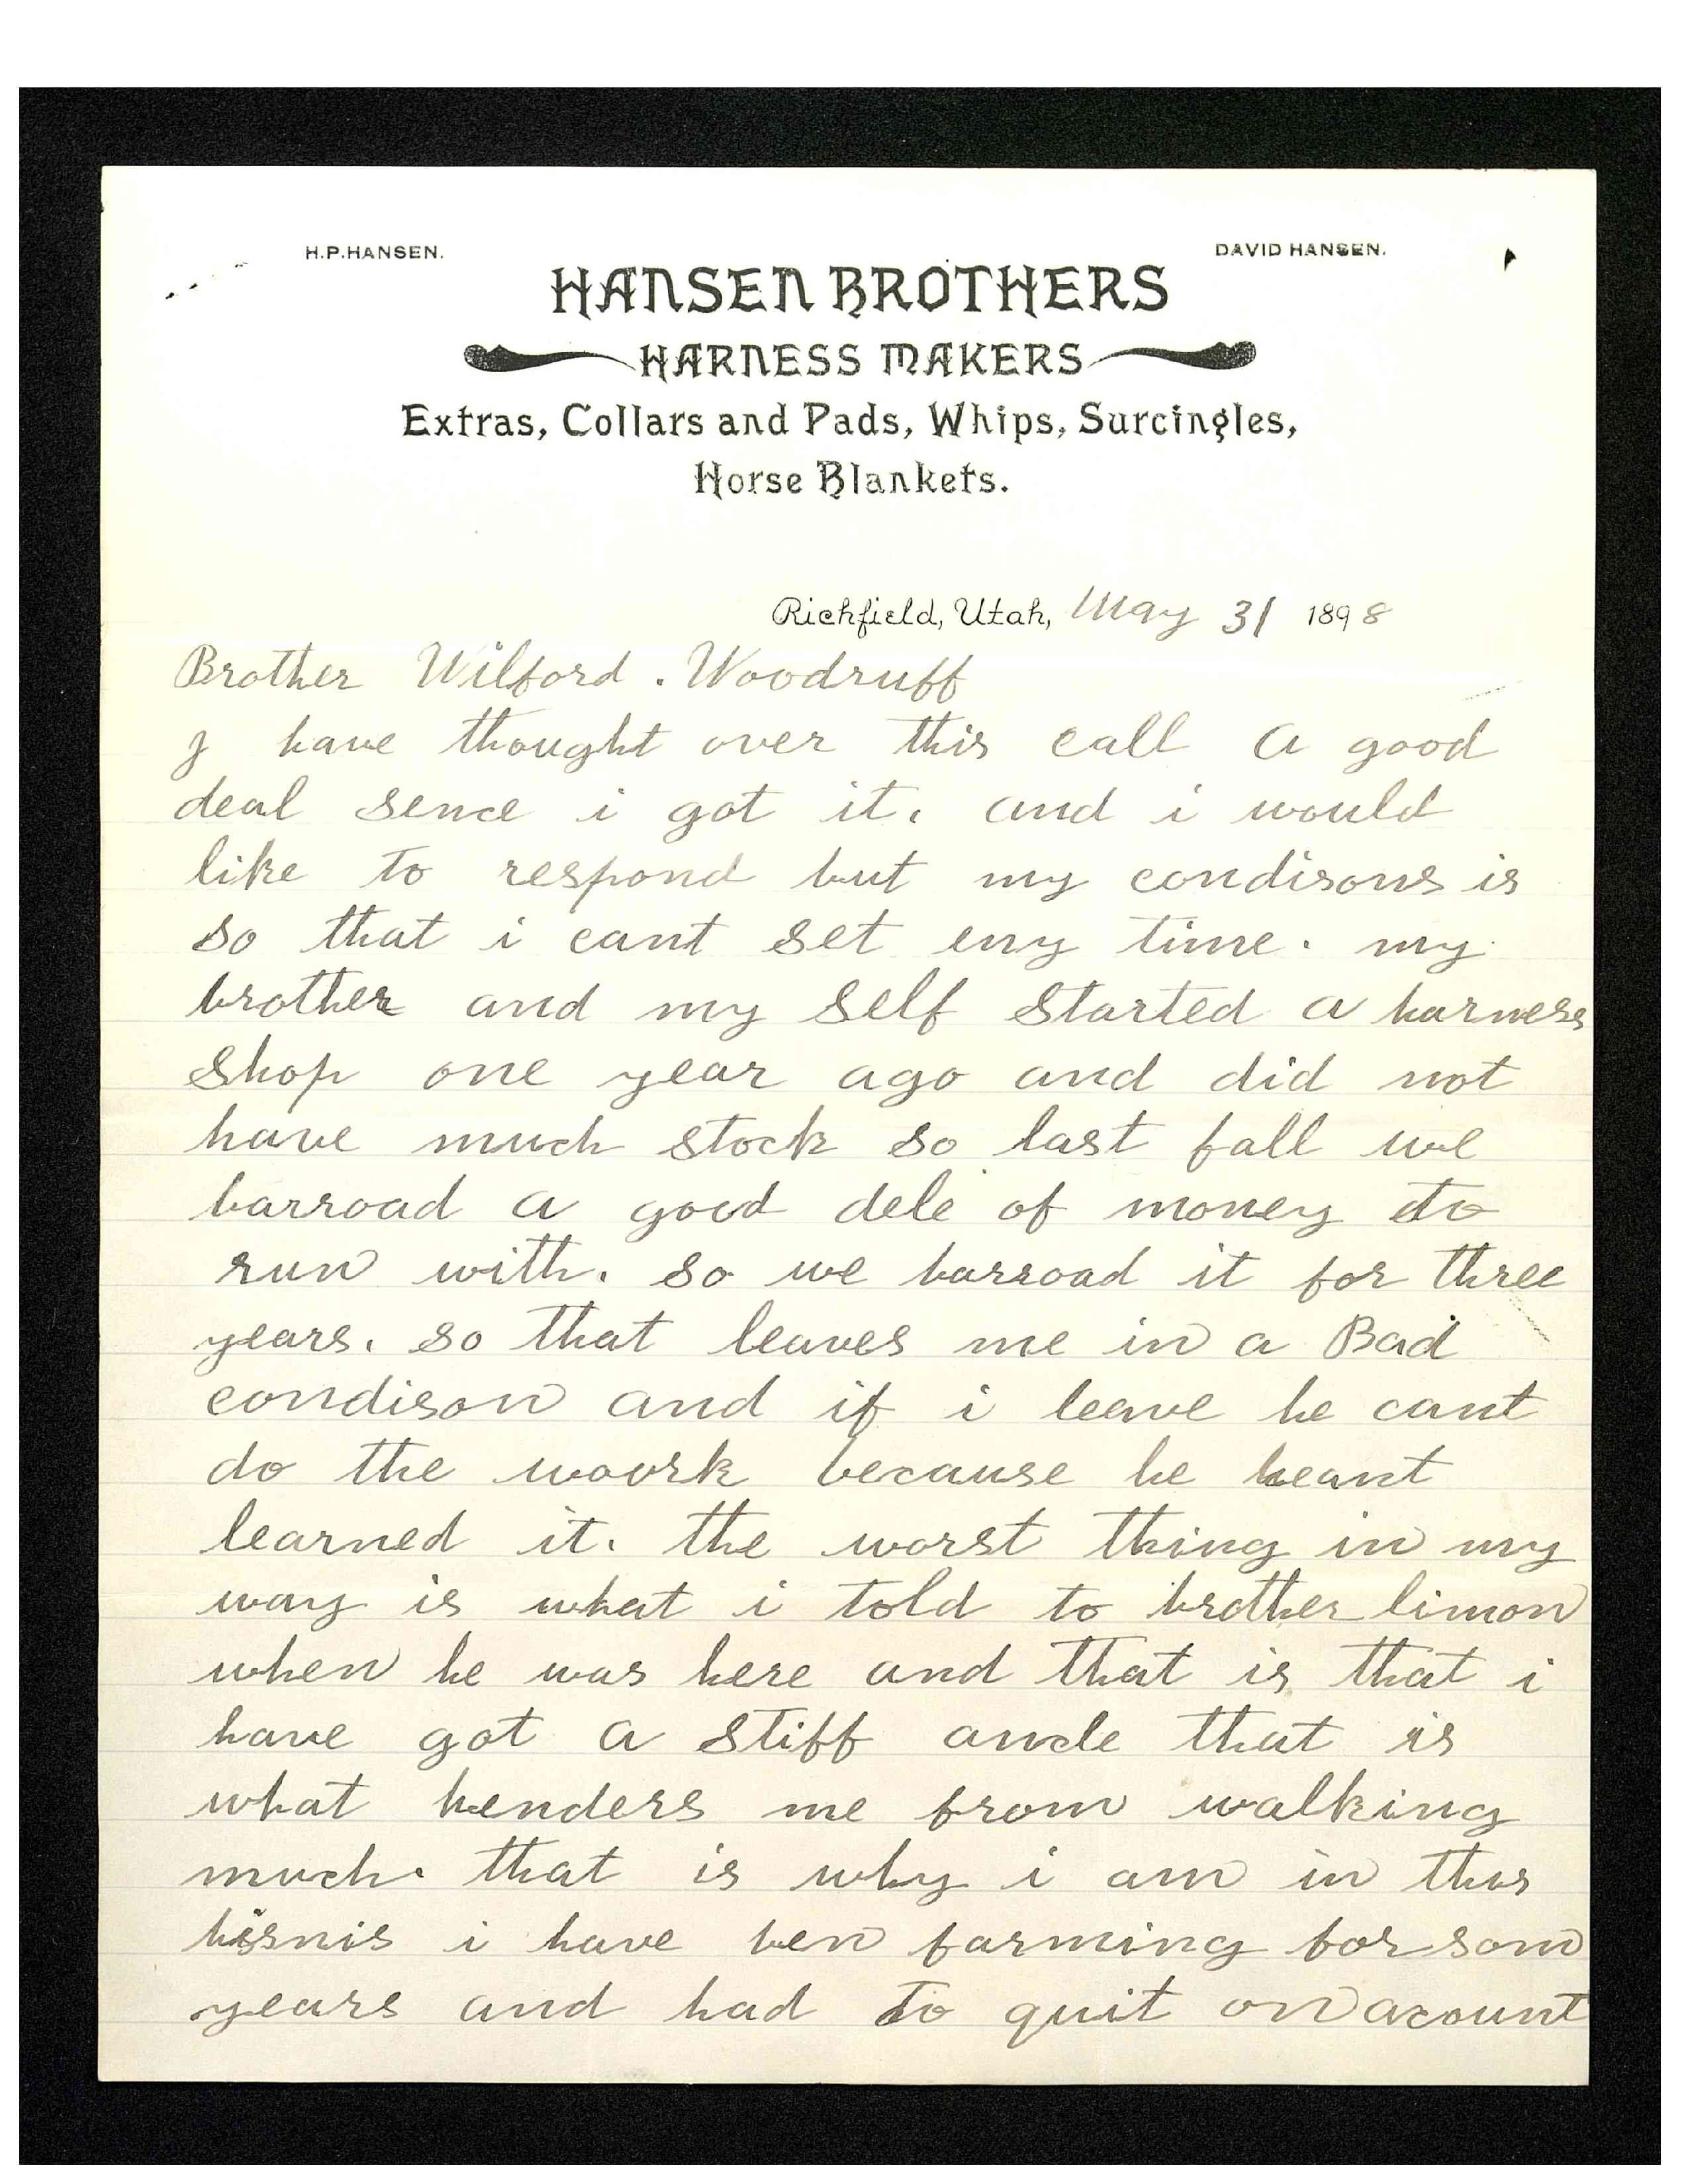 H.P.HANSEN.
DAVID HANSEN.
HANSEN BROTHERS
HARNESS MAKERS
Extras, Collars and Pads, Whips, Surcingles,
Horse Blankets.
Richfield, Utah, May 31 1898
Brother Wilford . Woodruff
I have thought over this call a good
deal sence i got it. and i would
like to respond but my condisons is
so that i cant set eny time. my
brother and my self started a harness
shop one year ago and did not
have much stock so last fall we
barroad a good dele of money to
run with. so we barroad it for three
years. so that leaves me in a Bad
condison and if i leave he cant
do the woork because he heant
learned it. the worst thing in my
way is what i told to brother limon
when he was here and that is that i
have got a stiff ancle that is
what henders me from walking
much. that is why i am in this
bisnis i have ben farming for som
years and had to quit on acount